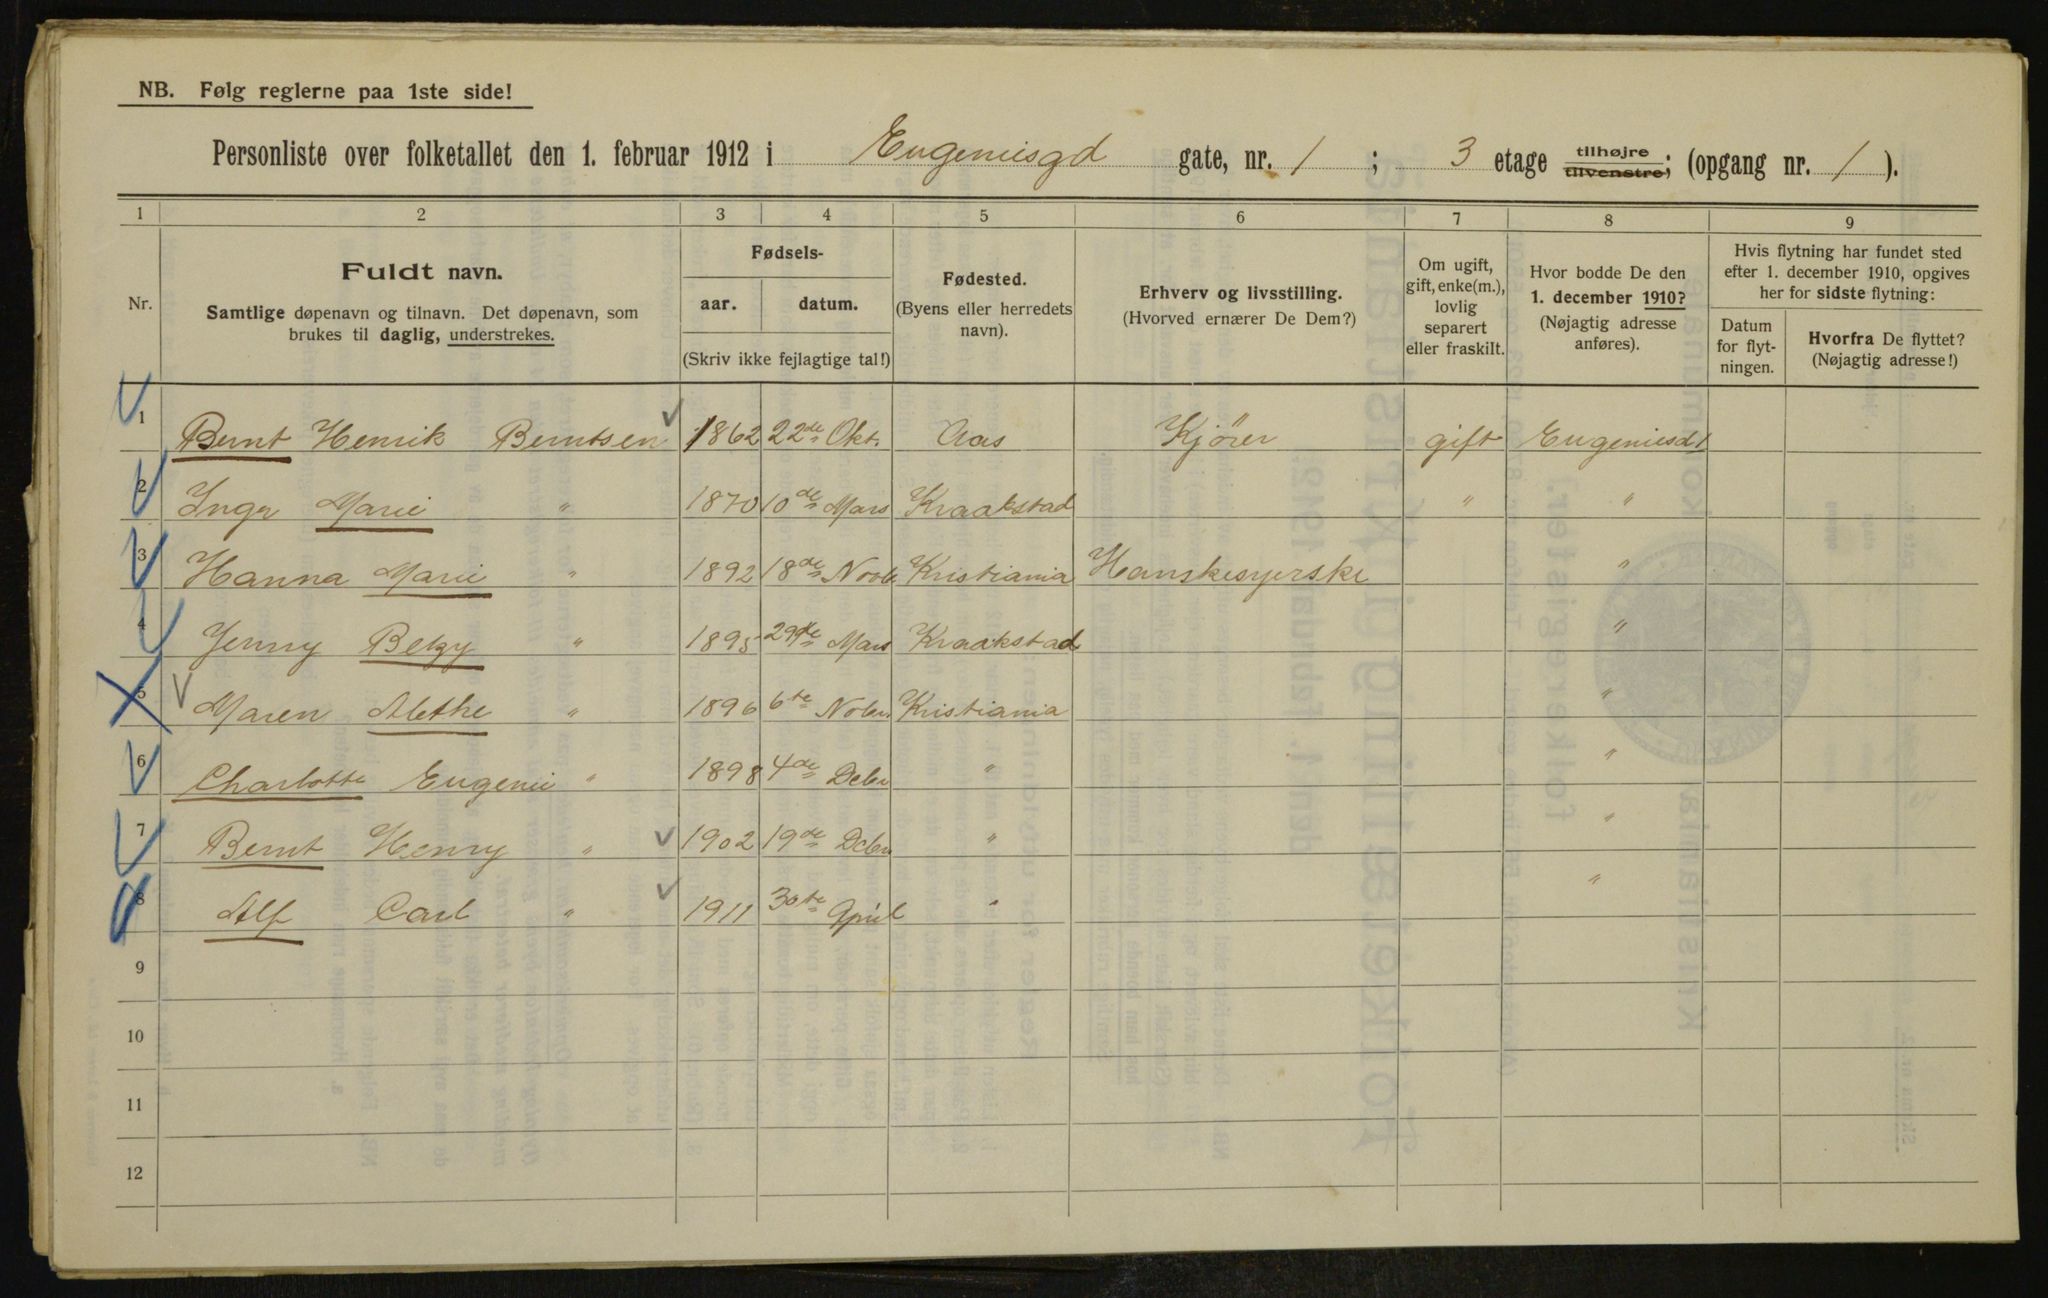 NB. Følg reglerne paa 1ste side!
Personliste over folketallet den 1. februar 1912 i Eugeniesgd gate, nr. 1; 3 etage tilhøjre tilvenstre; (opgang nr. 1).
1 2 3 4 5 6 7 8 9
Nr.
Fuldt navn.
Samtlige døpenavn og tilnavn. Det døpenavn, som
brukes til daglig, understrekes.
Fødsels-
aar. datum.
(Skriv ikke fejlagtige tal!)
Fødested.
(Byens eller herredets
navn).
Erhverv og livsstilling.
(Hvorved ernærer De Dem?)
Om ugift,
gift, enke(m.),
lovlig
separert
eller fraskilt.
Hvor bodde De den
1. december 1910?
(Nøjagtig adresse
anføres).
Hvis flytning har fundet sted
efter 1. december 1910, opgives
her for sidste flytning:
Datum
for flyt-
ningen.
Hvorfra De flyttet?
(Nøjagtig adresse!)
1 Bernt Henrik Berntsen 1862 22de Okt. Aas Kjörer gift Eugeniesd 1
2 Inga Marie " 1870 10de Mars Kraakstad " "
3 Hanna Marie " 1892 18de Novbr Kristiania Hanskesyerske "
4 Jenny Betzy " 1895 29de Mars Kraakstad "
5 Maren Alethe " 1896 6te Nobr Kristiania "
6 Charlotte Eugenie " 1898 4de Dcbr " "
7 Bernt Henry " 1902 19de Dcbr " "
8 Alf Carl " 1911 30te April " "
9
10
11
12